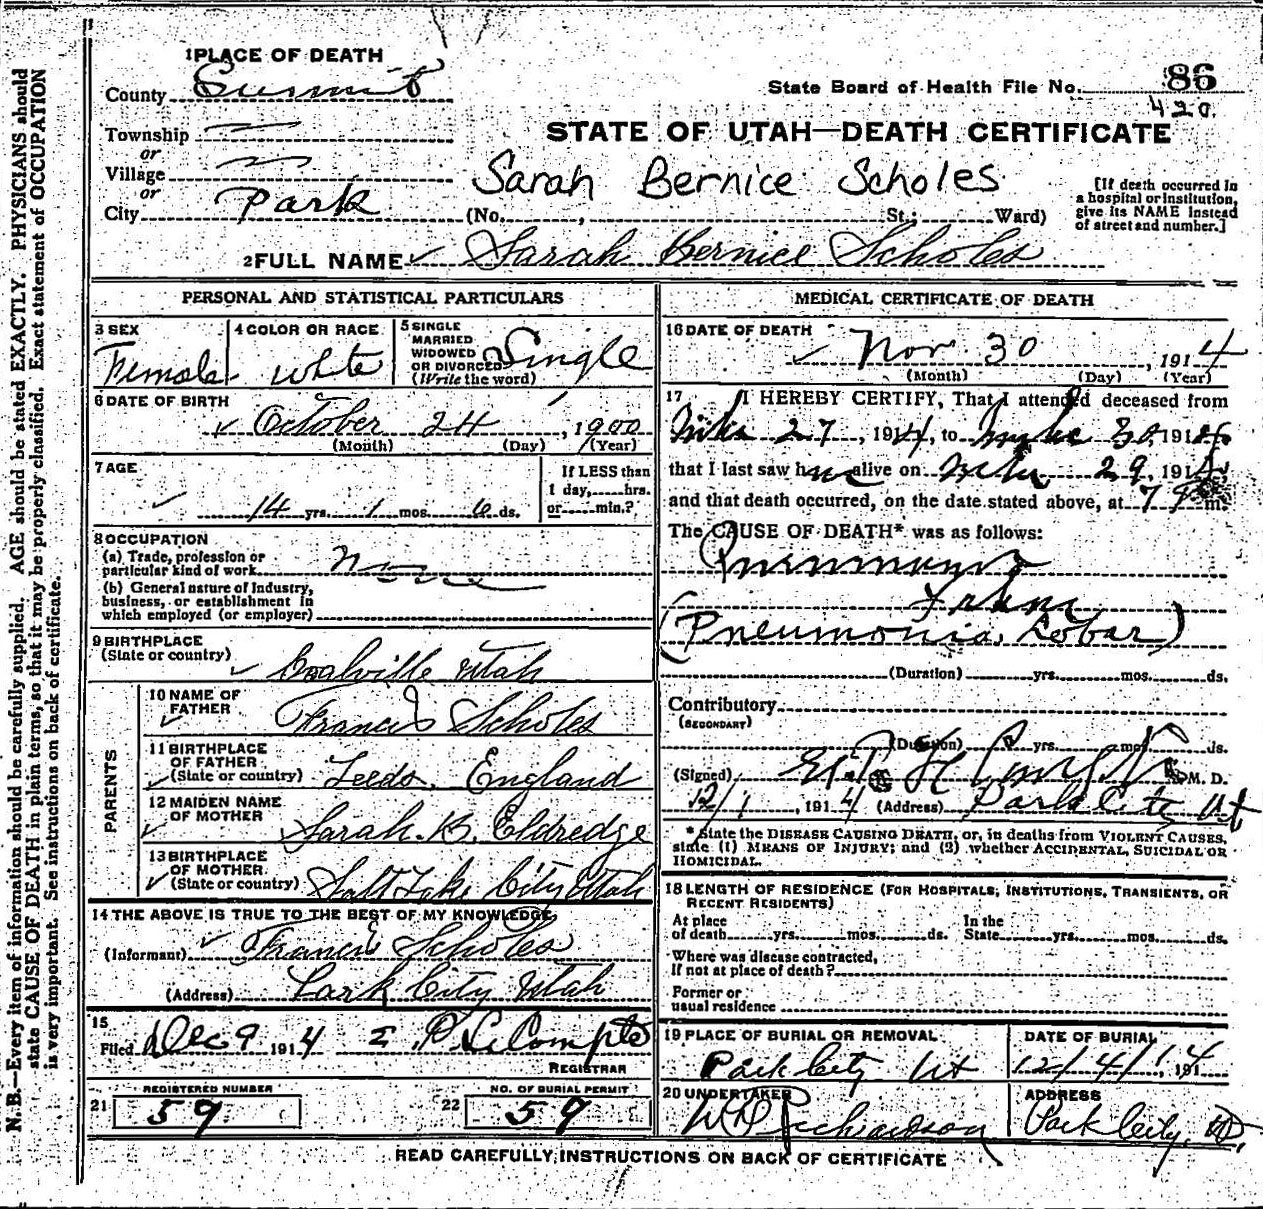 1 PLACE OF DEATH
County Summit
State Board of Health File No. 86
420.
Township
or
Village
or
City Park
STATE OF UTAH—DEATH CERTIFICATE
Sarah Bernice Scholes
(No. , St.; Ward)
[If death occurred in
a hospital or institution,
give its NAME instead
of street and number.]
2 FULL NAME Sarah Bernice Scholes
PERSONAL AND STATISTICAL PARTICULARS
3 SEX
Female
4 COLOR OR RACE
White
5 SINGLE
MARRIED
WIDOWED
OR DIVORCED
(Write the word)
Single
6 DATE OF BIRTH
October 24, 1900
(Month) (Day) (Year)
7 AGE
14 yrs. 1 mos. 6 ds.
If LESS than
1 day, hrs.
or min.?
8 OCCUPATION
(a) Trade, profession or
particular kind of work None
(b) General nature of Industry,
business, or establishment in
which employed (or employer)
9 BIRTHPLACE
(State or country) Coalville Utah
PARENTS
10 NAME OF
FATHER Francis Scholes
11 BIRTHPLACE
OF FATHER
(State or country) Leeds, England
12 MAIDEN NAME
OF MOTHER Sarah. B. Eldredge
13 BIRTHPLACE
OF MOTHER
(State or country) Salt Lake City Utah
14 THE ABOVE IS TRUE TO THE BEST OF MY KNOWLEDGE
(Informant) Francis Scholes
(Address) Park City Utah
15
Filed Dec 9 1914 E. P. LeCompte
REGISTRAR
REGISTERED NUMBER
21 59
NO. OF BURIAL PERMIT
22 59
MEDICAL CERTIFICATE OF DEATH
16 DATE OF DEATH
Nov 30, 1914
(Month) (Day) (Year)
17 I HEREBY CERTIFY, That I attended deceased from
27, 1914, to 30, 191
that I last saw h alive on 29, 1914,
and that death occurred, on the date stated above, at 7 m.
The CAUSE OF DEATH* was as follows:
Pneumonia
(Pneumonia, Lobar)
(Duration) yrs. mos. ds.
Contributory
(SECONDARY)
(Duration) yrs. mos. ds.
(Signed) M. D.
12/1, 1914 (Address) Park City Ut
* State the DISEASE CAUSING DEATH, or, in deaths from VIOLENT CAUSES,
state (1) MEANS OF INJURY; and (2) whether ACCIDENTAL, SUICIDAL OR
HOMICIDAL.
18 LENGTH OF RESIDENCE (FOR HOSPITALS, INSTITUTIONS, TRANSIENTS, OR
RECENT RESIDENTS)
At place
of death yrs. mos. ds.
In the
State yrs. mos. ds.
Where was disease contracted,
if not at place of death?
Former or
usual residence
19 PLACE OF BURIAL OR REMOVAL
Park City Ut
DATE OF BURIAL
12/4/, 1914
20 UNDERTAKER
Richardson
ADDRESS
Park City,
READ CAREFULLY INSTRUCTIONS ON BACK OF CERTIFICATE
N. B.—Every item of information should be carefully supplied. AGE should be stated EXACTLY. PHYSICIANS should
state CAUSE OF DEATH in plain terms, so that it may be properly classified. Exact statement of OCCUPATION
is very important. See instructions on back of certificate.